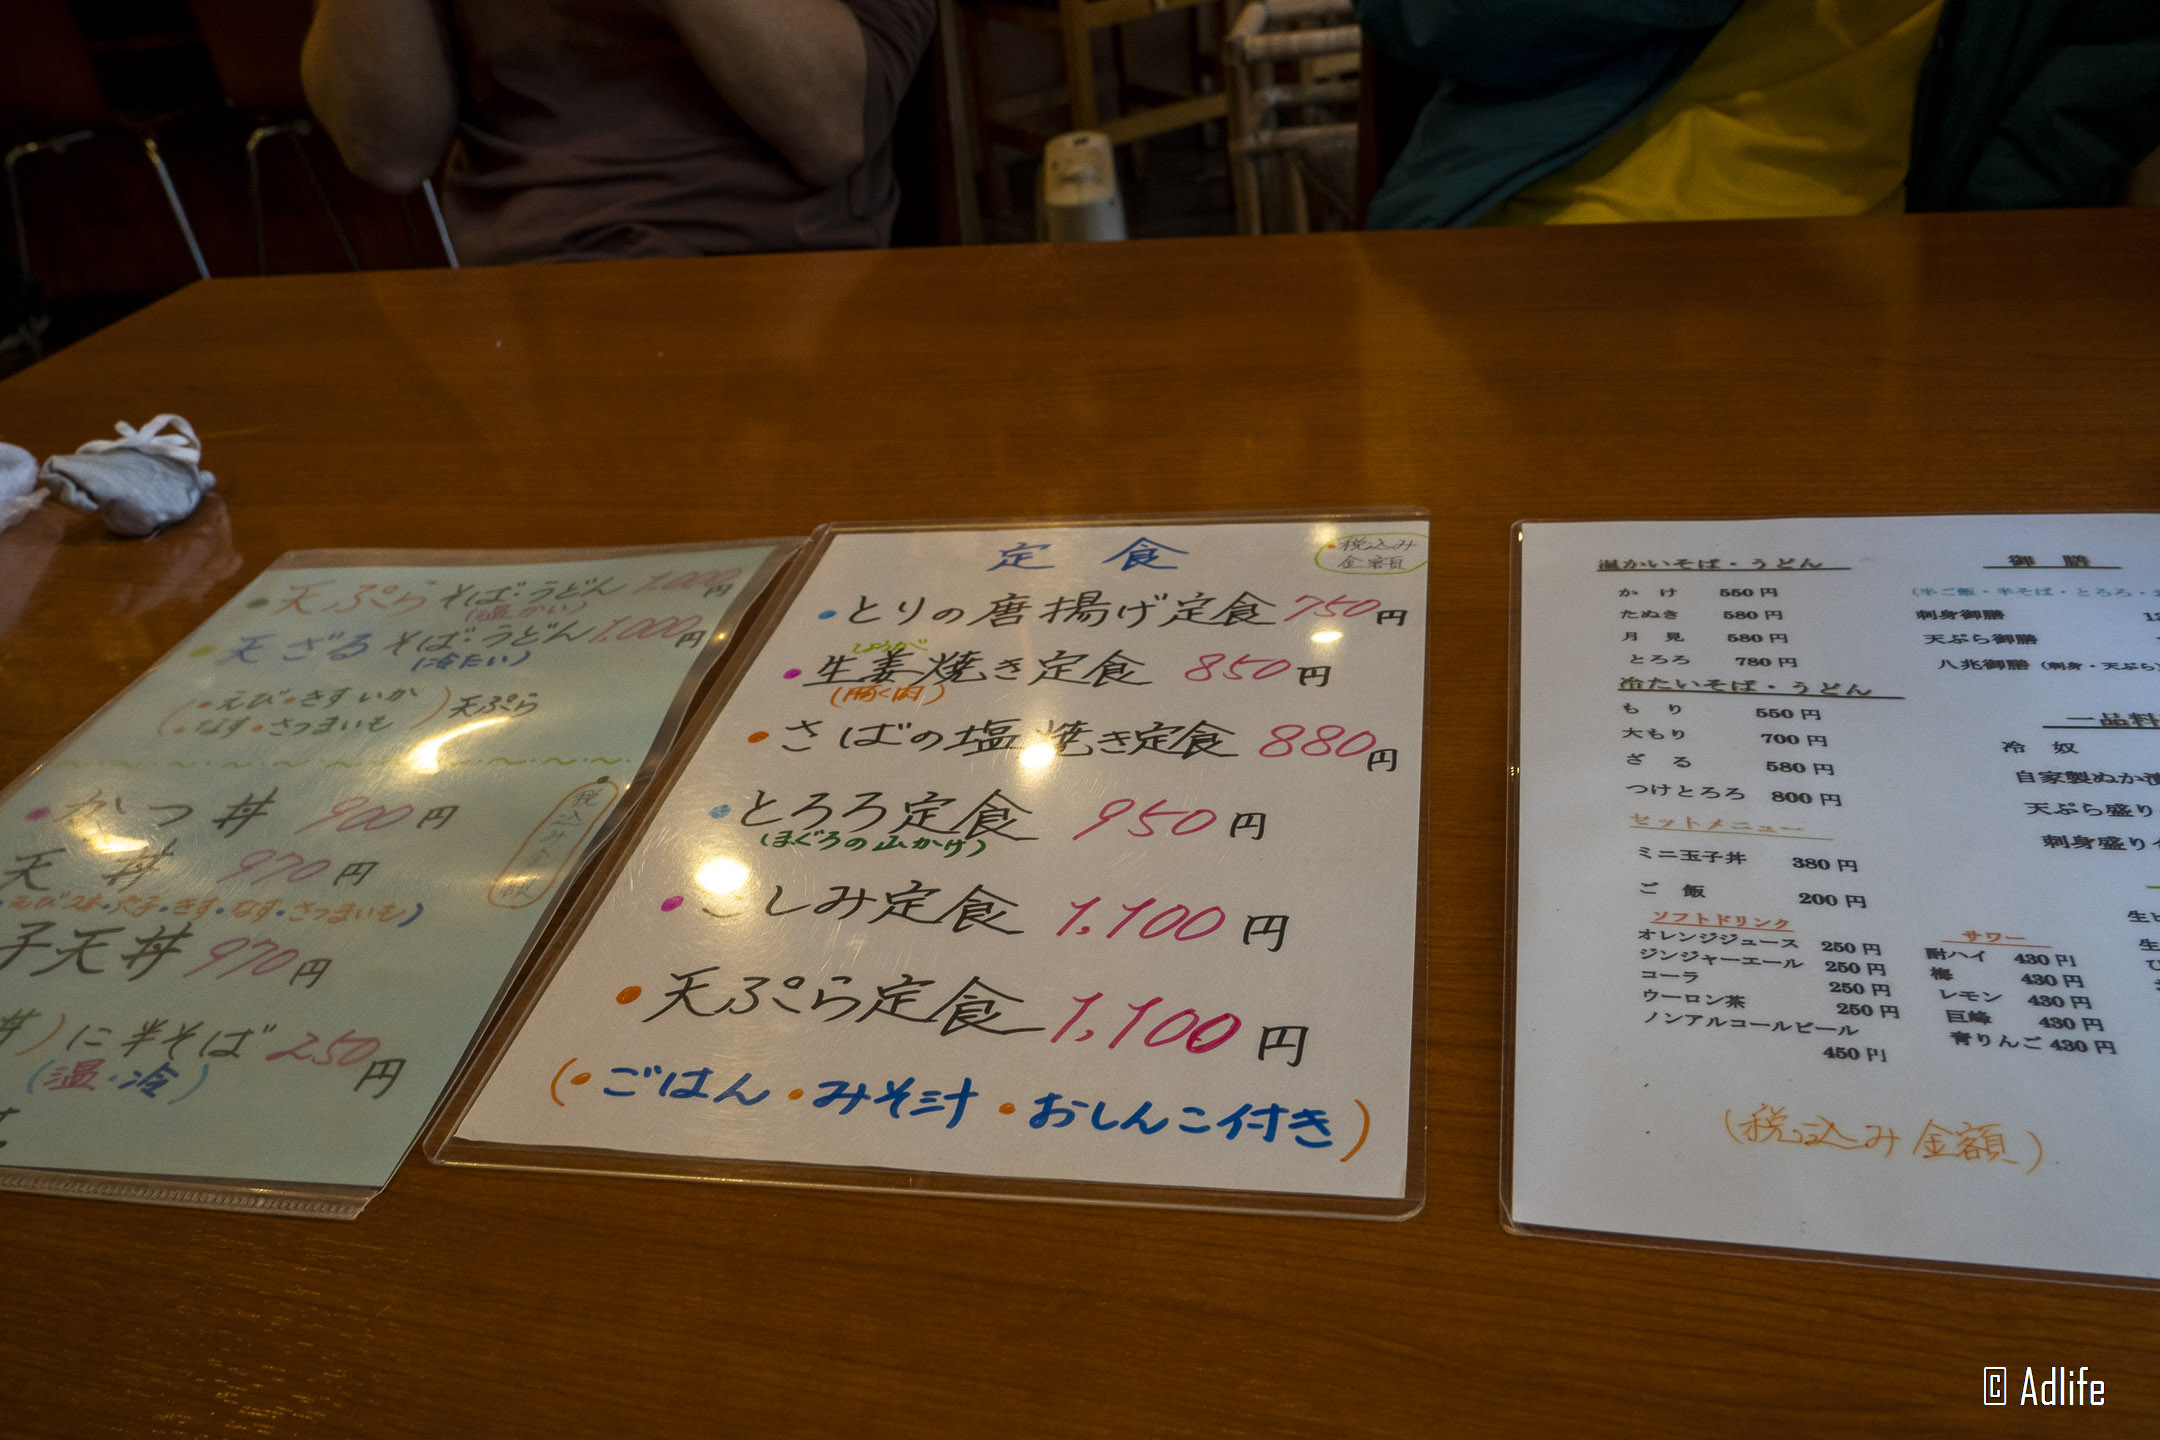 天ぷらそば・うどん 1,000円
(温かい)
天ざるそば・うどん 1,000円
(冷たい)
(・えび・きす いか
・なす・さつまいも) 天ぷら
税込み金額
かつ丼 900円
天丼 970円
・えび2本・穴子・きす・なす・さつまいも)
子天丼 970円
丼)に半そば 250円
(温・冷)
定食
・税込み
金額
・とりの唐揚げ定食 750円
しょうが
・生姜焼き定食 850円
(豚肉)
・さばの塩焼き定食 880円
・とろろ定食 950円
(まぐろの山かけ)
しみ定食 1,100円
・天ぷら定食 1,100円
(・ごはん・みそ汁・おしんこ付き)
温かいそば・うどん
かけ 550円
たぬき 580円
月見 580円
とろろ 780円
冷たいそば・うどん
もり 550円
大もり 700円
ざる 580円
つけとろろ 800円
セットメニュー
ミニ玉子丼 380円
ご飯 200円
ソフトドリンク
オレンジジュース 250円
ジンジャーエール 250円
コーラ 250円
ウーロン茶 250円
ノンアルコールビール
450円
御膳
(半ご飯・半そば・とろろ・
刺身御膳
天ぷら御膳
八兆御膳(刺身・天ぷら)
一品料
冷奴
自家製ぬか漬
天ぷら盛り
刺身盛り
サワー
酎ハイ 430円
梅 430円
レモン 430円
巨峰 430円
青りんご 430円
(税込み金額)
© Adlife